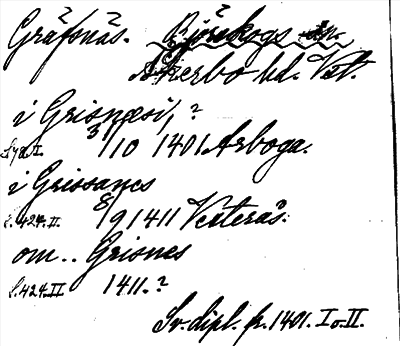 Gräfsnäs. Björskogs sn.
Åkerbo hd. Vst.
i Grisnæsi, ?
3/10 1401 Arboga.
i Grissanes
S. 424. II. 8/9 1411 Vesterås.
om.. Grisnes
S. 424. II 1411. ?
Sv. dipl. fr. 1401. I o. II.